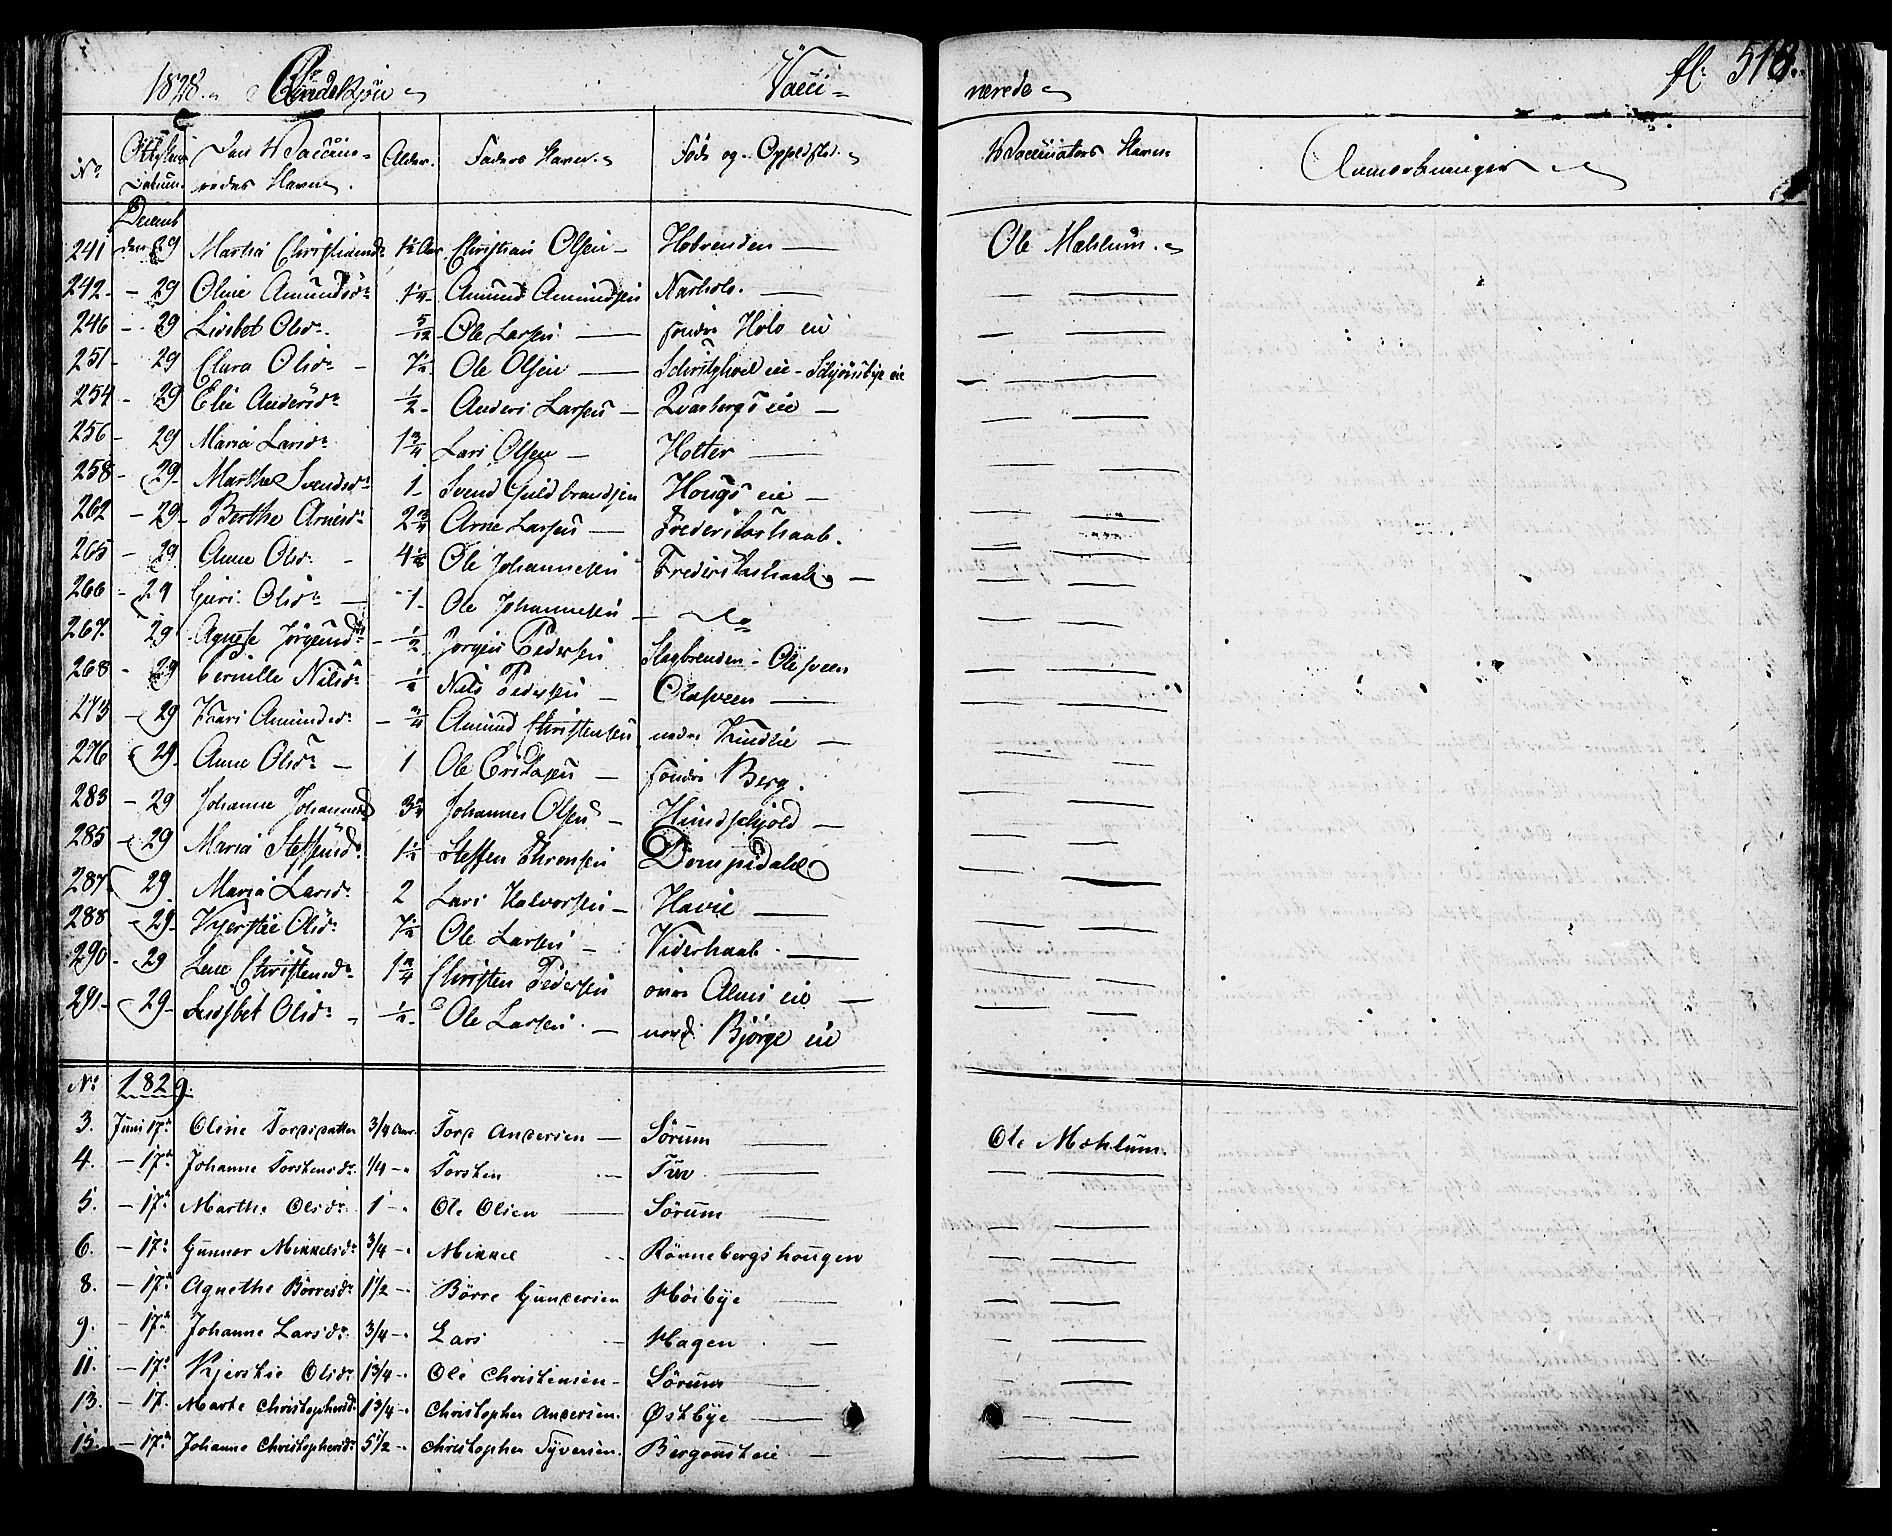 1828. Qvindekjön Vacci- nerede fl. 518.
No. Attestens Datum. Den Vaccineredes Navn. Alder. Faders Navn. Føde og Oppeholdst. Vaccinators Navn. Anmærkninger
Decemb
241 den 29 Martha Christiansdr 1½ Aar. Christian Olsen - Hobrenden - Ole Mæhlum.
242 - 29 Oline Amundsdr 1¼ Amund Amundsen
246 - 29 Lisebet Olsdr. 5/12 Ole Larsen - søndre Holo eie
251 - 29 Clara Olsdr - 7½ Ole Olsen -
254 - 29 Elie Andersdr ½ - Anders Larsen - Qvarbergs eie -
256 - 29 Maria Larsdr. 1¾ Lars Olsen - Holter -
258 - 29 - Marthe Svendsdr 1 - Svend Guldbrandsen Hougs eie -
262 - 29 - Berthe Arnesdr 2¾ Arne Larsen - Frederikshaab.
265 - 29 Anne Olsdr. - 4½ Ole Johannesen Frederikshaab -
266 - 29 Guri Olsdr - 1 - Ole Johannesen -
267. 29 Agnete Jörgensdr - ½ Jörgen Pedersen
268 - 29 Pernille Nilsdr - ½ Nils Pedersen - Olasveen -
273 - 29 Kari Amundsdr - ¾ Amund Christensen nedre Kindlie -
276 29 - Anne Olsdr - 1 Ole Eriksen - søndre Berg.
283 - 29 Johanne Johannesd 3¾ Johannes Olsen - Hundskjold -
285 - 29 Maria Steffensdr. 1½ Steffen Thronsen Dompidahl
287 29 - Maria Larsdr. 2 Lars Halvorsen - Havie -
288 29 - Kjerstie Olsdr. 7½ Ole Larsen - Viderhaab. -
290 - 29 Lene Christensdr. 1¾ Christen Pedersen övre Alme eie -
291 - 29 - Lisebet Olsdr. - ½ - Ole Larsen. - nord. Bjørge eie
No. 1829.
3. Juni 17de Oline Torsdatter 3/4 Aar. Tord Andersen - Sörum - Ole Mæhlum.
4. - 17de Johanne Torstensdr. 1/4 - Torsten -
5. - 17de Marthe Olsdr. 1 - Ole Olsen - Sörum -
6. - 17de Gunnor Mikkelsdr 3/4 - Mikkel - Rönnebergshougen
8. - 17de Agnethe Börresdr 1 1/2 - Börre Gundersen Höibÿe -
9. - 17de Johanne Larsdr. 3/4 - Lars - Hagen -
11. - 17de Kjerstie Olsdr 1 3/4 - Ole Christensen - Sörum -
13. - 17. Marte Christophersd. 1 3/4 - Christopher Andersen. Østbÿe -
15. - 17de Johanne Christophersdr 5 1/2 - Christopher Syversen.